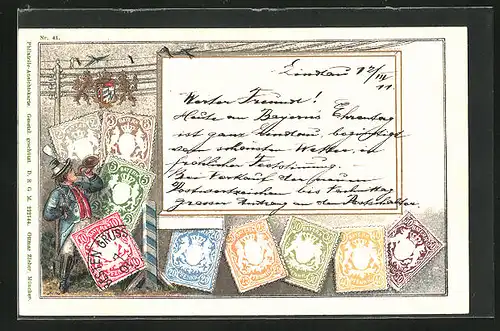 Nr. 41.
Philatelie-Ansichtskarte. Gesetzl. geschützt D. R. G. M.
Ottmar Zieher, München.
Lindau 12/III
11.
Werter Freund!
Heute an Bayerns Ehrentag
ist ganz Lindau, begünstigt
vom schönsten Wetter, in
fröhlicher Feststimmung.
Bei Verkauf der neuen
Postwertzeichen bis
grosser Andrang an den Postschalter
BESTEN GRUSS